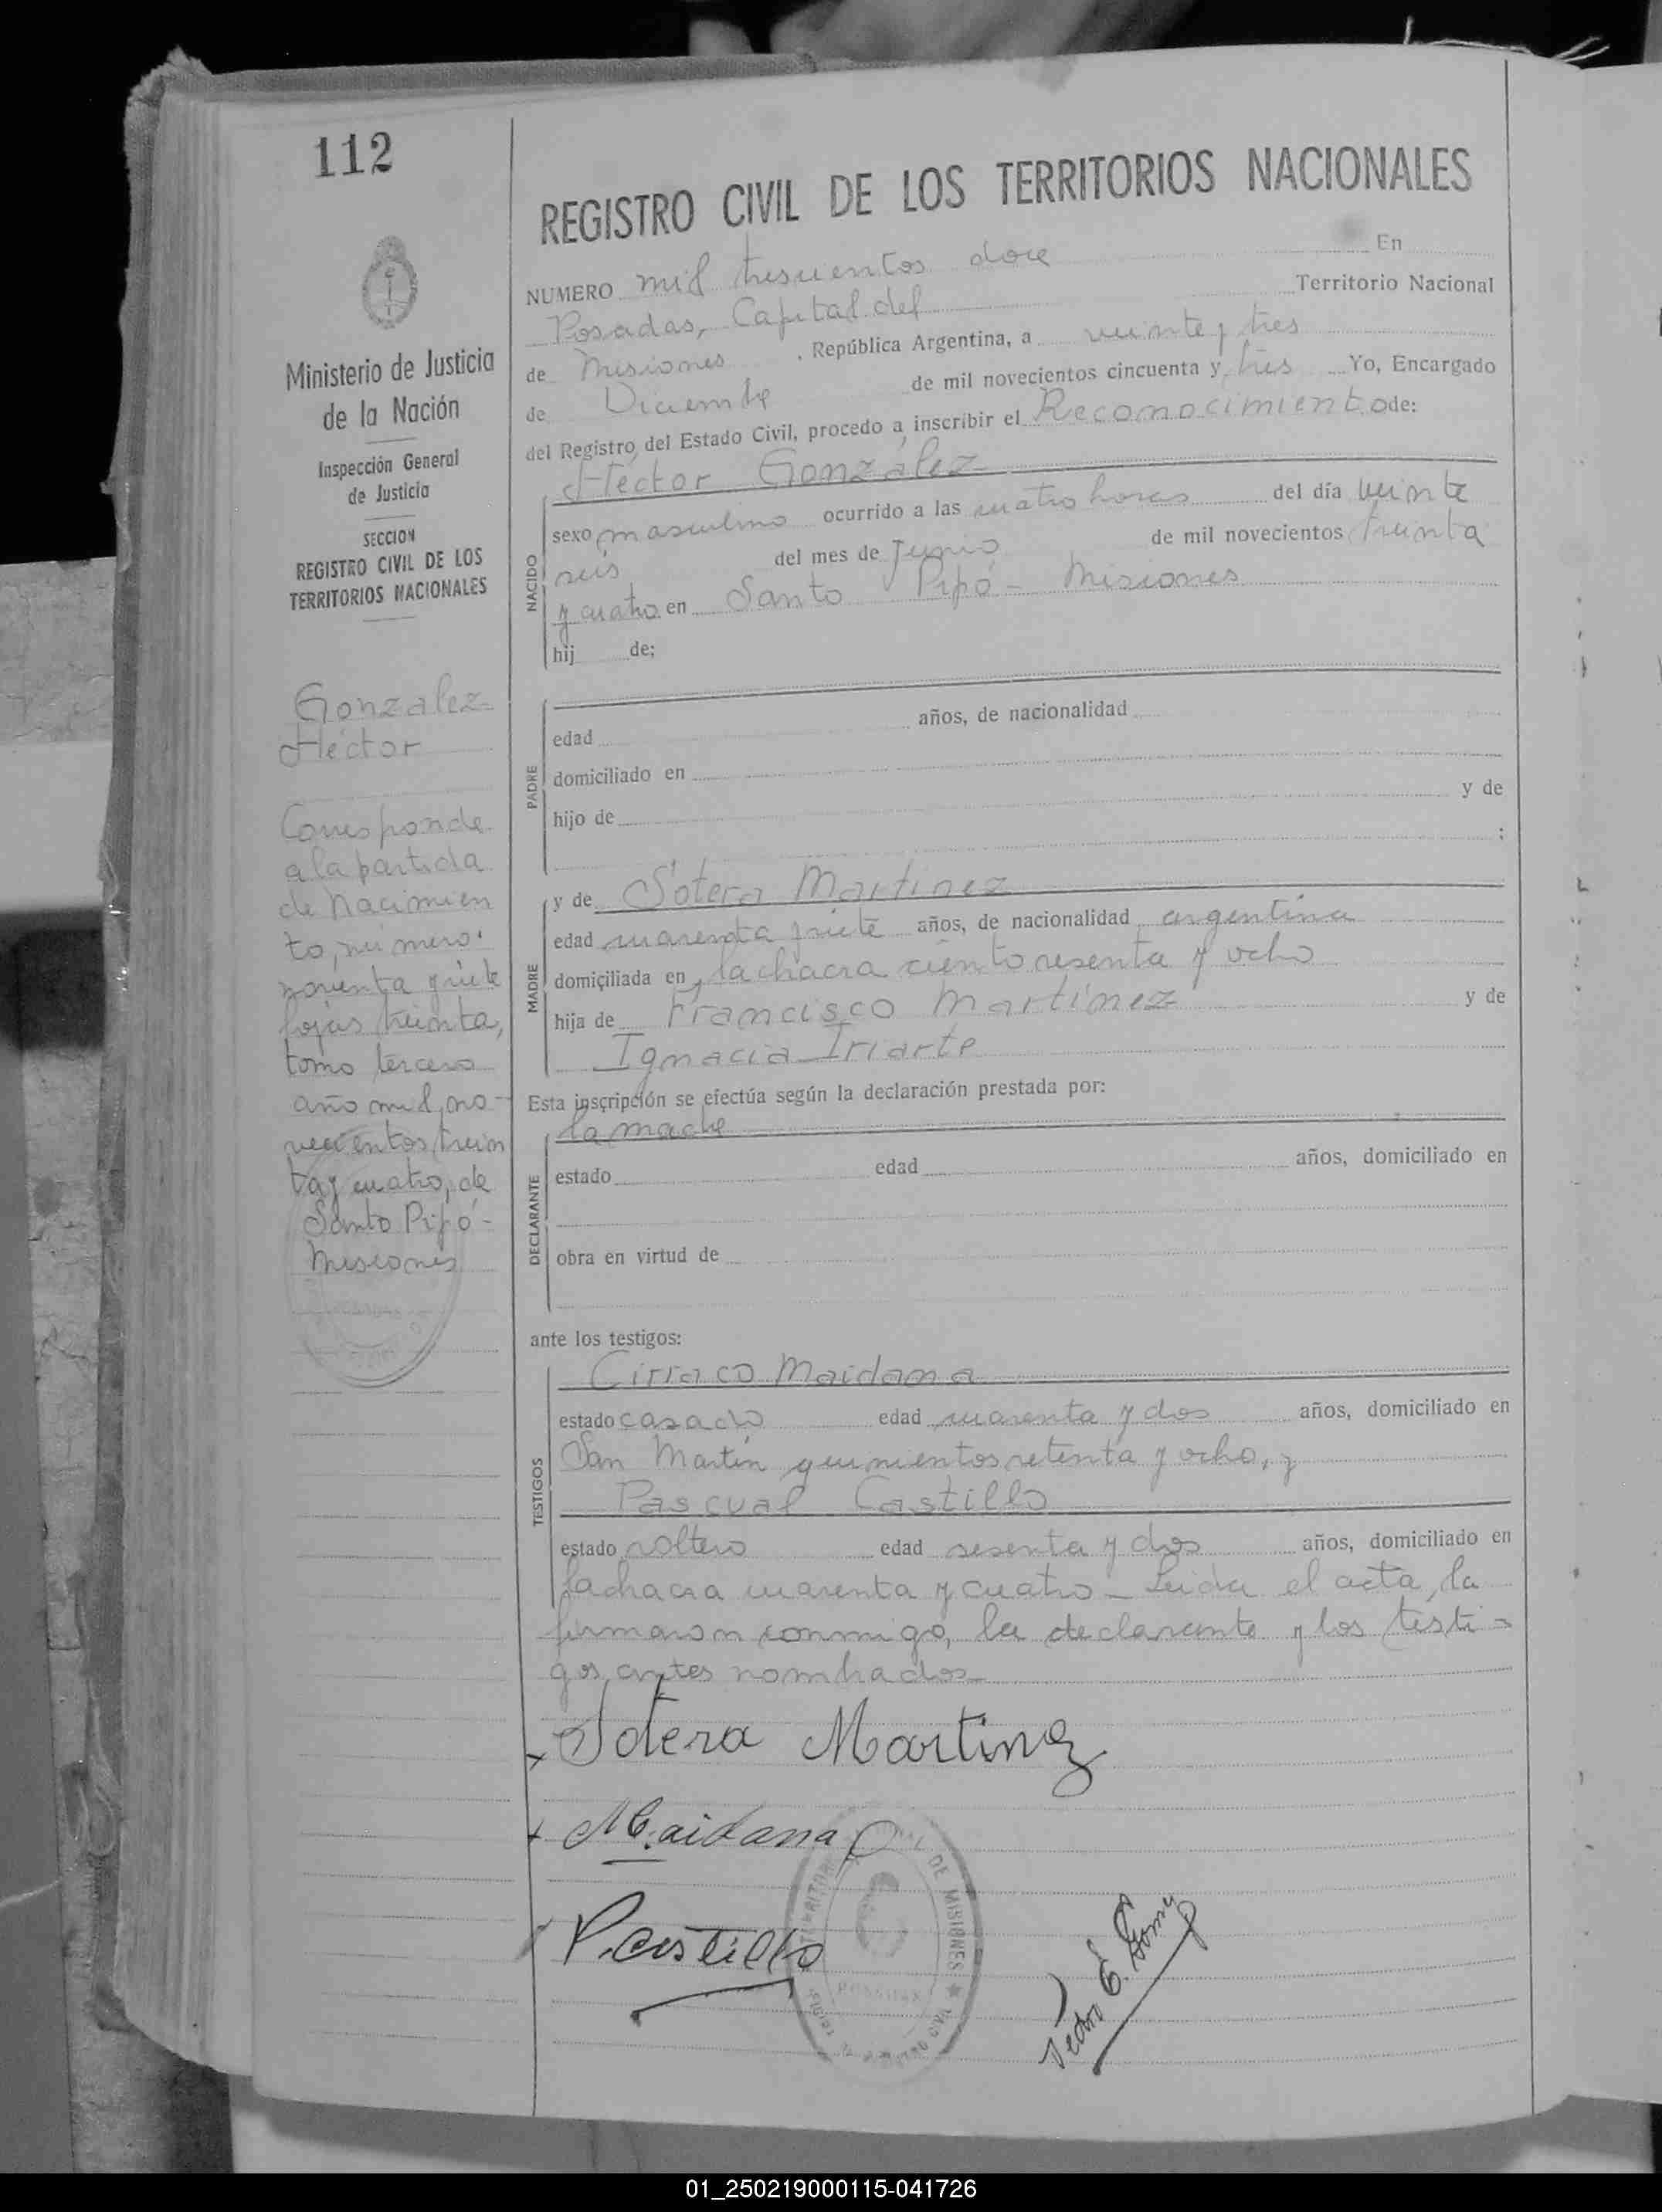 112
Ministerio de Justicia
de la Nación
Inspección General
de Justicia
SECCION
REGISTRO CIVIL DE LOS
TERRITORIOS NACIONALES
Gonzalez
Héctor
Corresponde
a la partida
de Nacimien
to, número
noventa y siete
fojas treinta,
tomo tercero
año mil no-
vecientos trein
ta y cuatro, de
Santo Pipó-
Misiones
REGISTRO CIVIL DE LOS TERRITORIOS NACIONALES
NUMERO mil trescientos doce En
Posadas, Capital del Territorio Nacional
de Misiones, República Argentina, a veinte y tres
de Diciembre de mil novecientos cincuenta y tres Yo, Encargado
del Registro del Estado Civil, procedo a inscribir el Reconocimiento de:
Héctor González
NACIDO
sexo masculino ocurrido a las cuatro horas del día veinte
seis del mes de Junio de mil novecientos treinta
y cuatro en Santo Pipó - Misiones
hij de;
PADRE
edad años, de nacionalidad
domiciliado en
hijo de y de
;
MADRE
y de Sotera Martinez
edad cuarenta y siete años, de nacionalidad argentina
domiciliada en, la chacra ciento sesenta y ocho
hija de Francisco Martínez y de
Ignacia Iriarte
Esta inscripción se efectúa según la declaración prestada por:
la madre
DECLARANTE
estado edad años, domiciliado en
obra en virtud de
ante los testigos:
Ciriaco Maidana
TESTIGOS
estado casado edad cuarenta y dos años, domiciliado en
San Martín quinientos setenta y ocho, y
Pascual Castillo
estado soltero edad sesenta y dos años, domiciliado en
la chacra cuarenta y cuatro - Leida el acta, la
firmaron conmigo, la declarante y los testi=
gos antes nombrados-
Sotera Martinez
Maidana
P. Castillo
DE MISIONES
POSADAS
Pedro E. Gomez
01_250219000115-041726